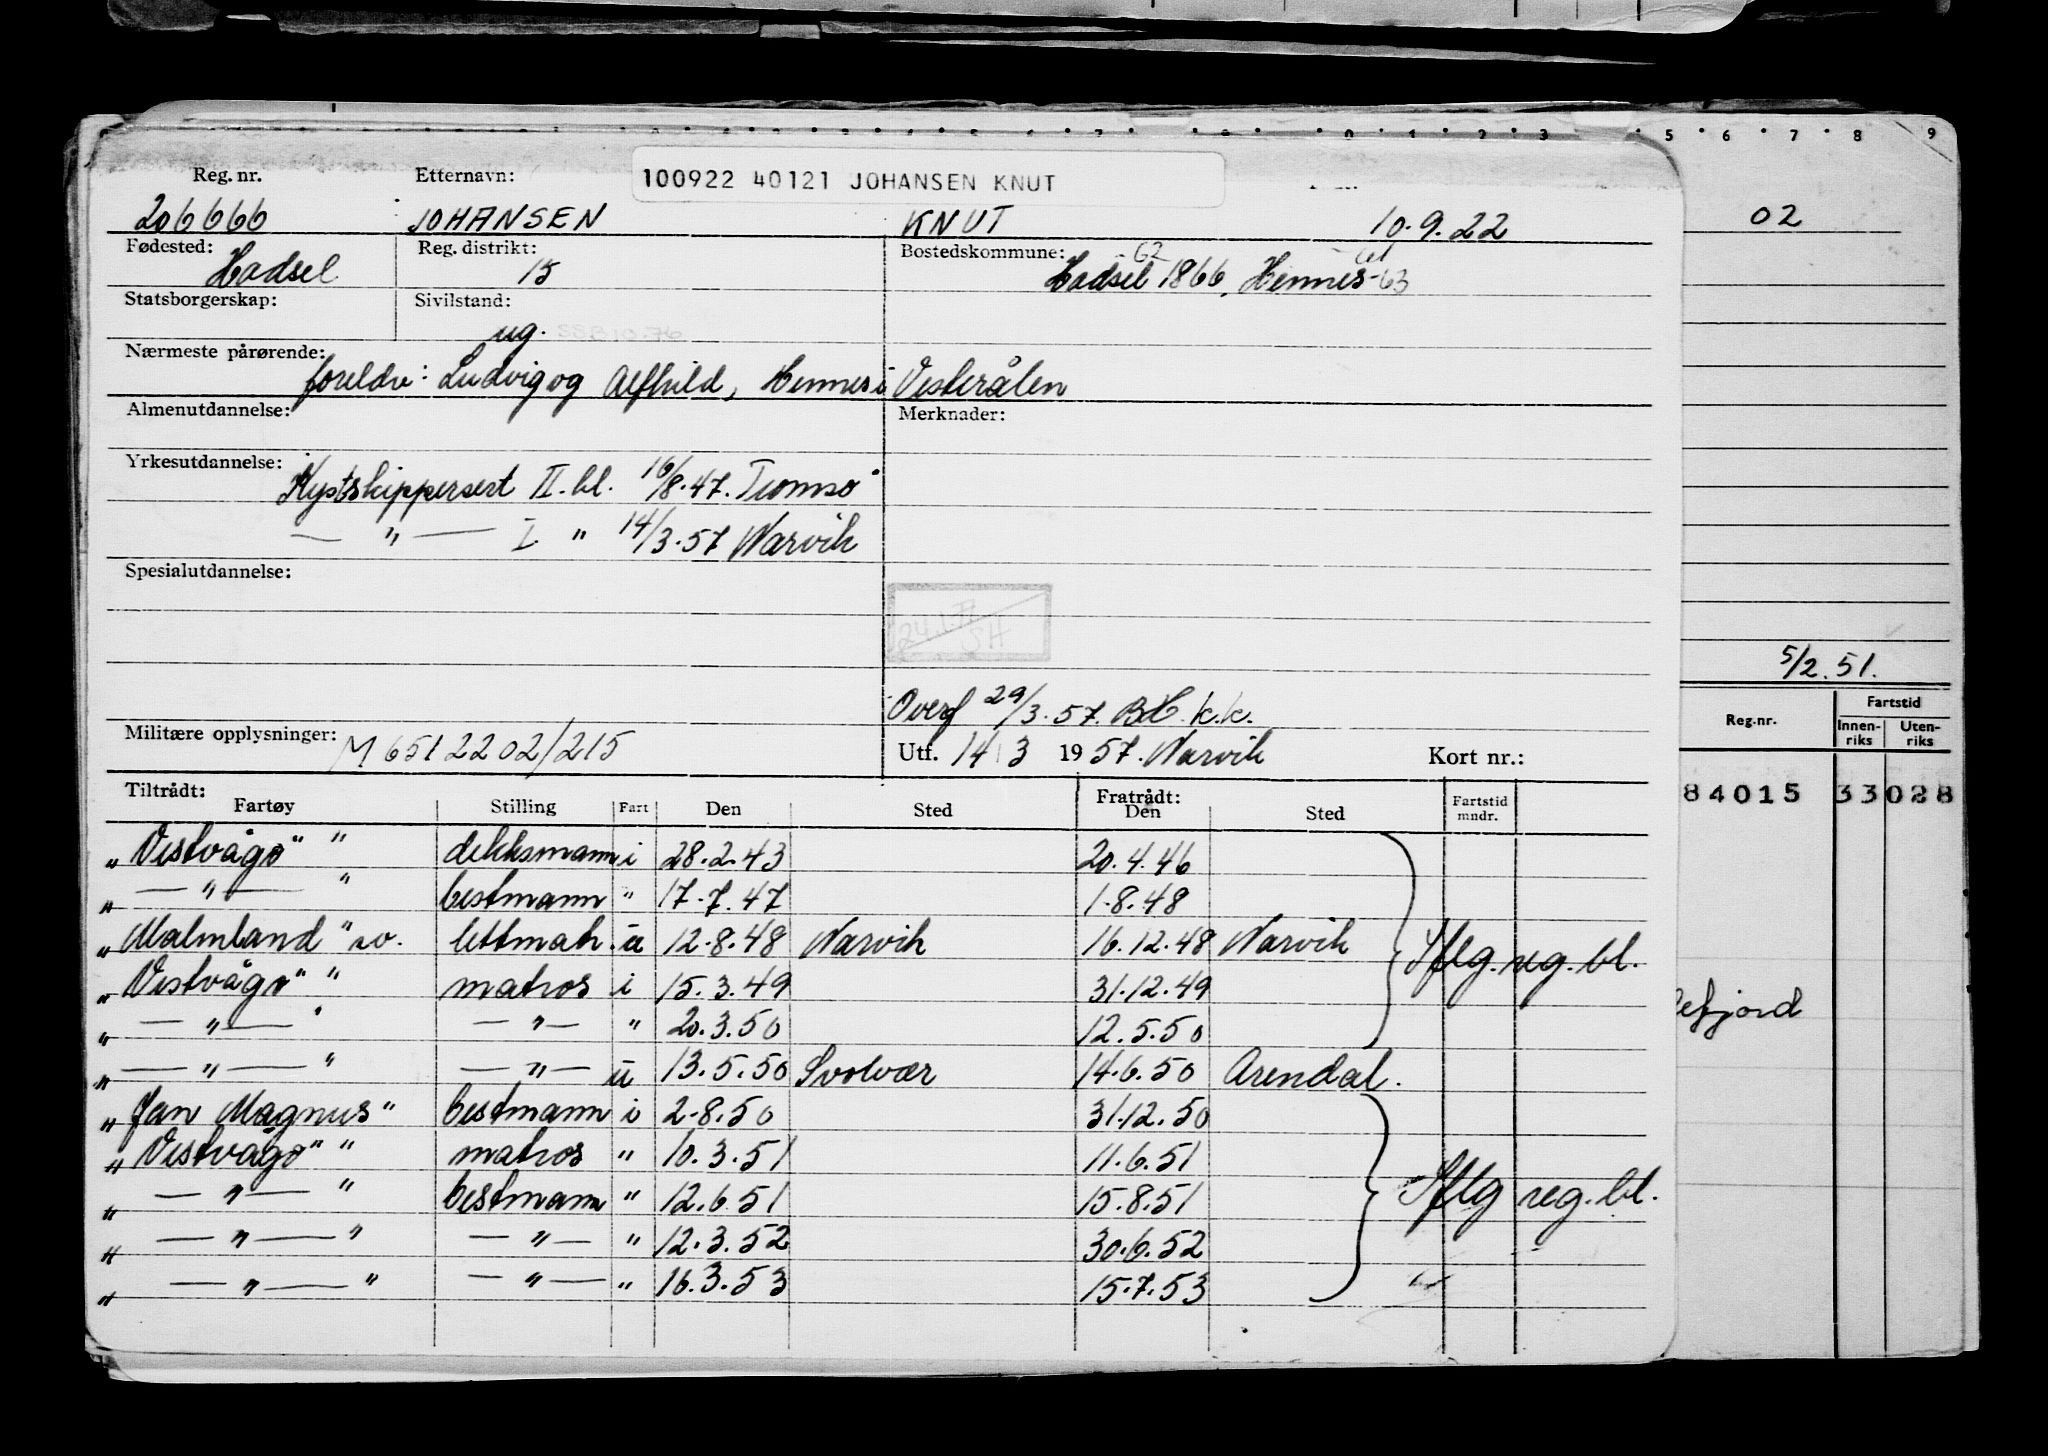 5 6 7 8 9
100922 40121 JOHANSEN KNUT
Reg. nr. Etternavn:
206666 JOHANSEN KNUT 10.9.22
02
Fødested: Reg. distrikt: Bostedskommune:
Hadsel 15 Hadsel 1866, Hennes-63
62
Statsborgerskap: Sivilstand:
ug. SSB10.76
Nærmeste pårørende:
foreldre: Ludvig og Alfhild, Hennes i Vesterålen
Almenutdannelse: Merknader:
Yrkesutdannelse:
Kystskippersert II. kl. 16/8.47. Tromsø
— " — I. " 14/3.57 Narvik
Spesialutdannelse:
SH
5/2.51.
Overf 29/3.57. k.k.
Militære opplysninger: M6512202/215 Utf. 14/3 1957. Narvik Kort nr.:
Reg.nr. Fartstid
Innen-riks Uten-riks
84015 33 028
Tiltrådt: Fratrådt:
Fartøy Stilling Fart Den Sted Den Sted Fartstid mndr.
"Vestvågø" " dekksmann i 28.2.43 20.4.46
" — " — " bestmann " 17.7.47 1.8.48
"Malmland" so. lettmatr. u 12.8.48 Narvik 16.12.48 Narvik Iflg. reg. bl.
"Vestvågø" " matros i 15.3.49 31.12.49
" — " — " — " — " 20.3.50 12.5.50
efjord
" — " — " — " — u 13.5.50 Svolvær 14.6.50 Arendal.
"Jan Magnus" bestmann i 2.8.50 31.12.50
"Vestvågø" " matros " 10.3.51 11.6.51
" — " — " bestmann " 12.6.51 15.8.51 Iflg reg. bl.
" — " — " — " — " 12.3.52 30.6.52
" — " — " — " — " 16.3.53 15.7.53